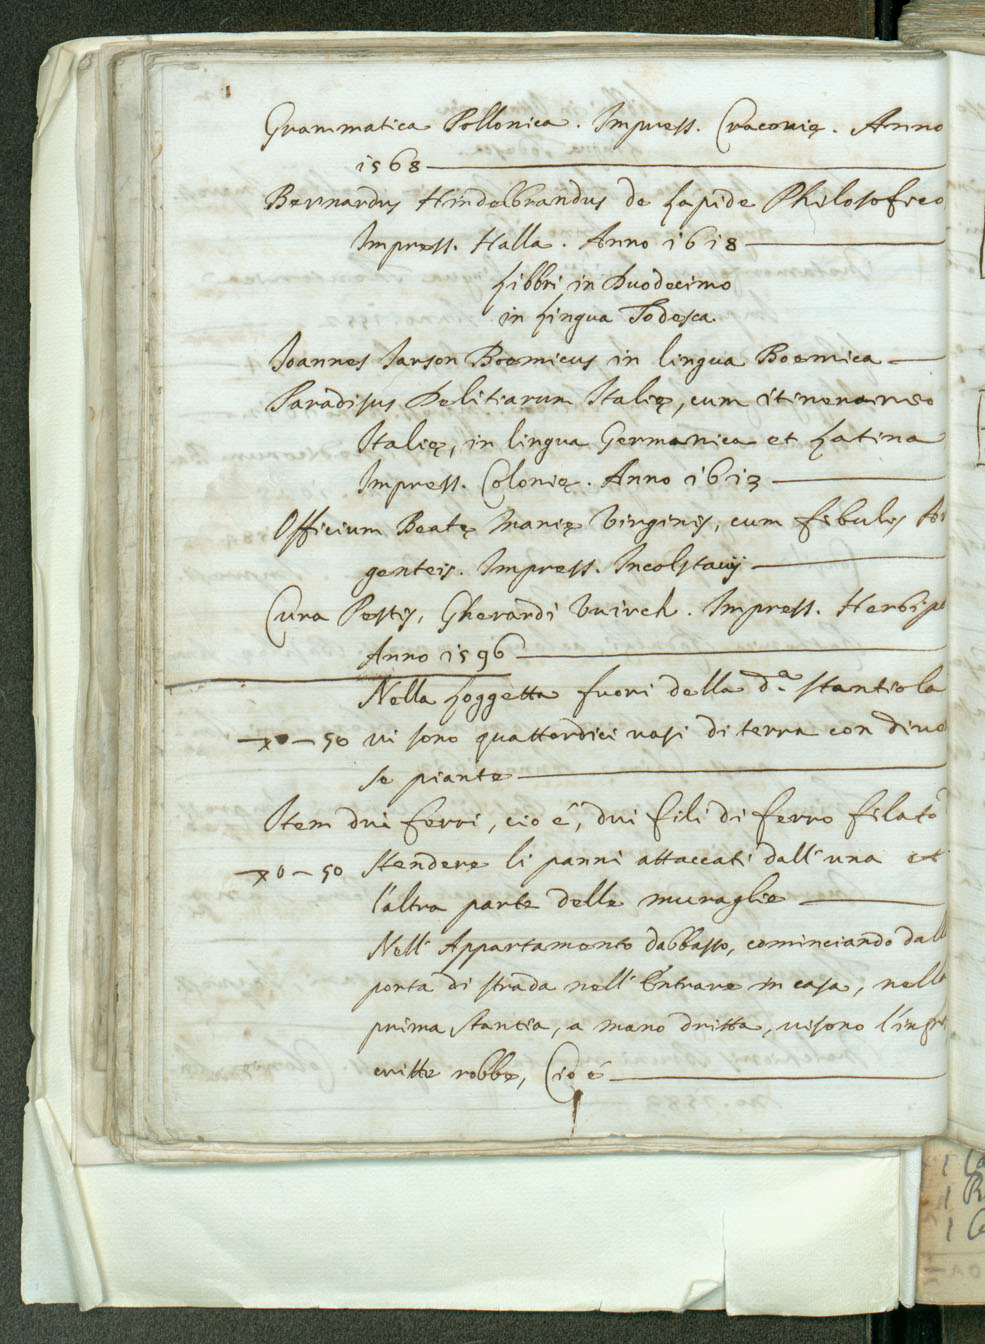 Grammatica Pollonica. Impress. Cracovię. Anno
1568
Bernardus Hindelbrandus de Lapide Philosofico
Impress. Halla. Anno 1618
Libbri in Duodecimo
in Lingua Todesca
Ioannes Iarson Boemicus in lingua Boemica
Paradisus Delitiarum Italię, cum itinerareo
Italię, in lingua Germanica et Latina
Impress. Colonię. Anno 1613
Officium Beatę Marię Virginis, cum fibulis Ar
genteis. Impress. Incolstavij
Cura Pestis, Gherardi Vuirch. Impress. Herbipo
Anno 1596
Nella Loggetta fuori della d.ª stantiola
—x0—50 vi sono quattordici vasi di terra con diver
se piante
Item dui ferri, cio é, dui fili di ferro filato
—x0—50 stendere li panni attaccati dall'una et
l'altra parte delle muraglie
Nell'Appartamento dabbasso, cominciando dall
porta di strada nell'Entrare in casa, nella
prima stantia, a mano dritta, visono l'infra
critte robbe, Cio é